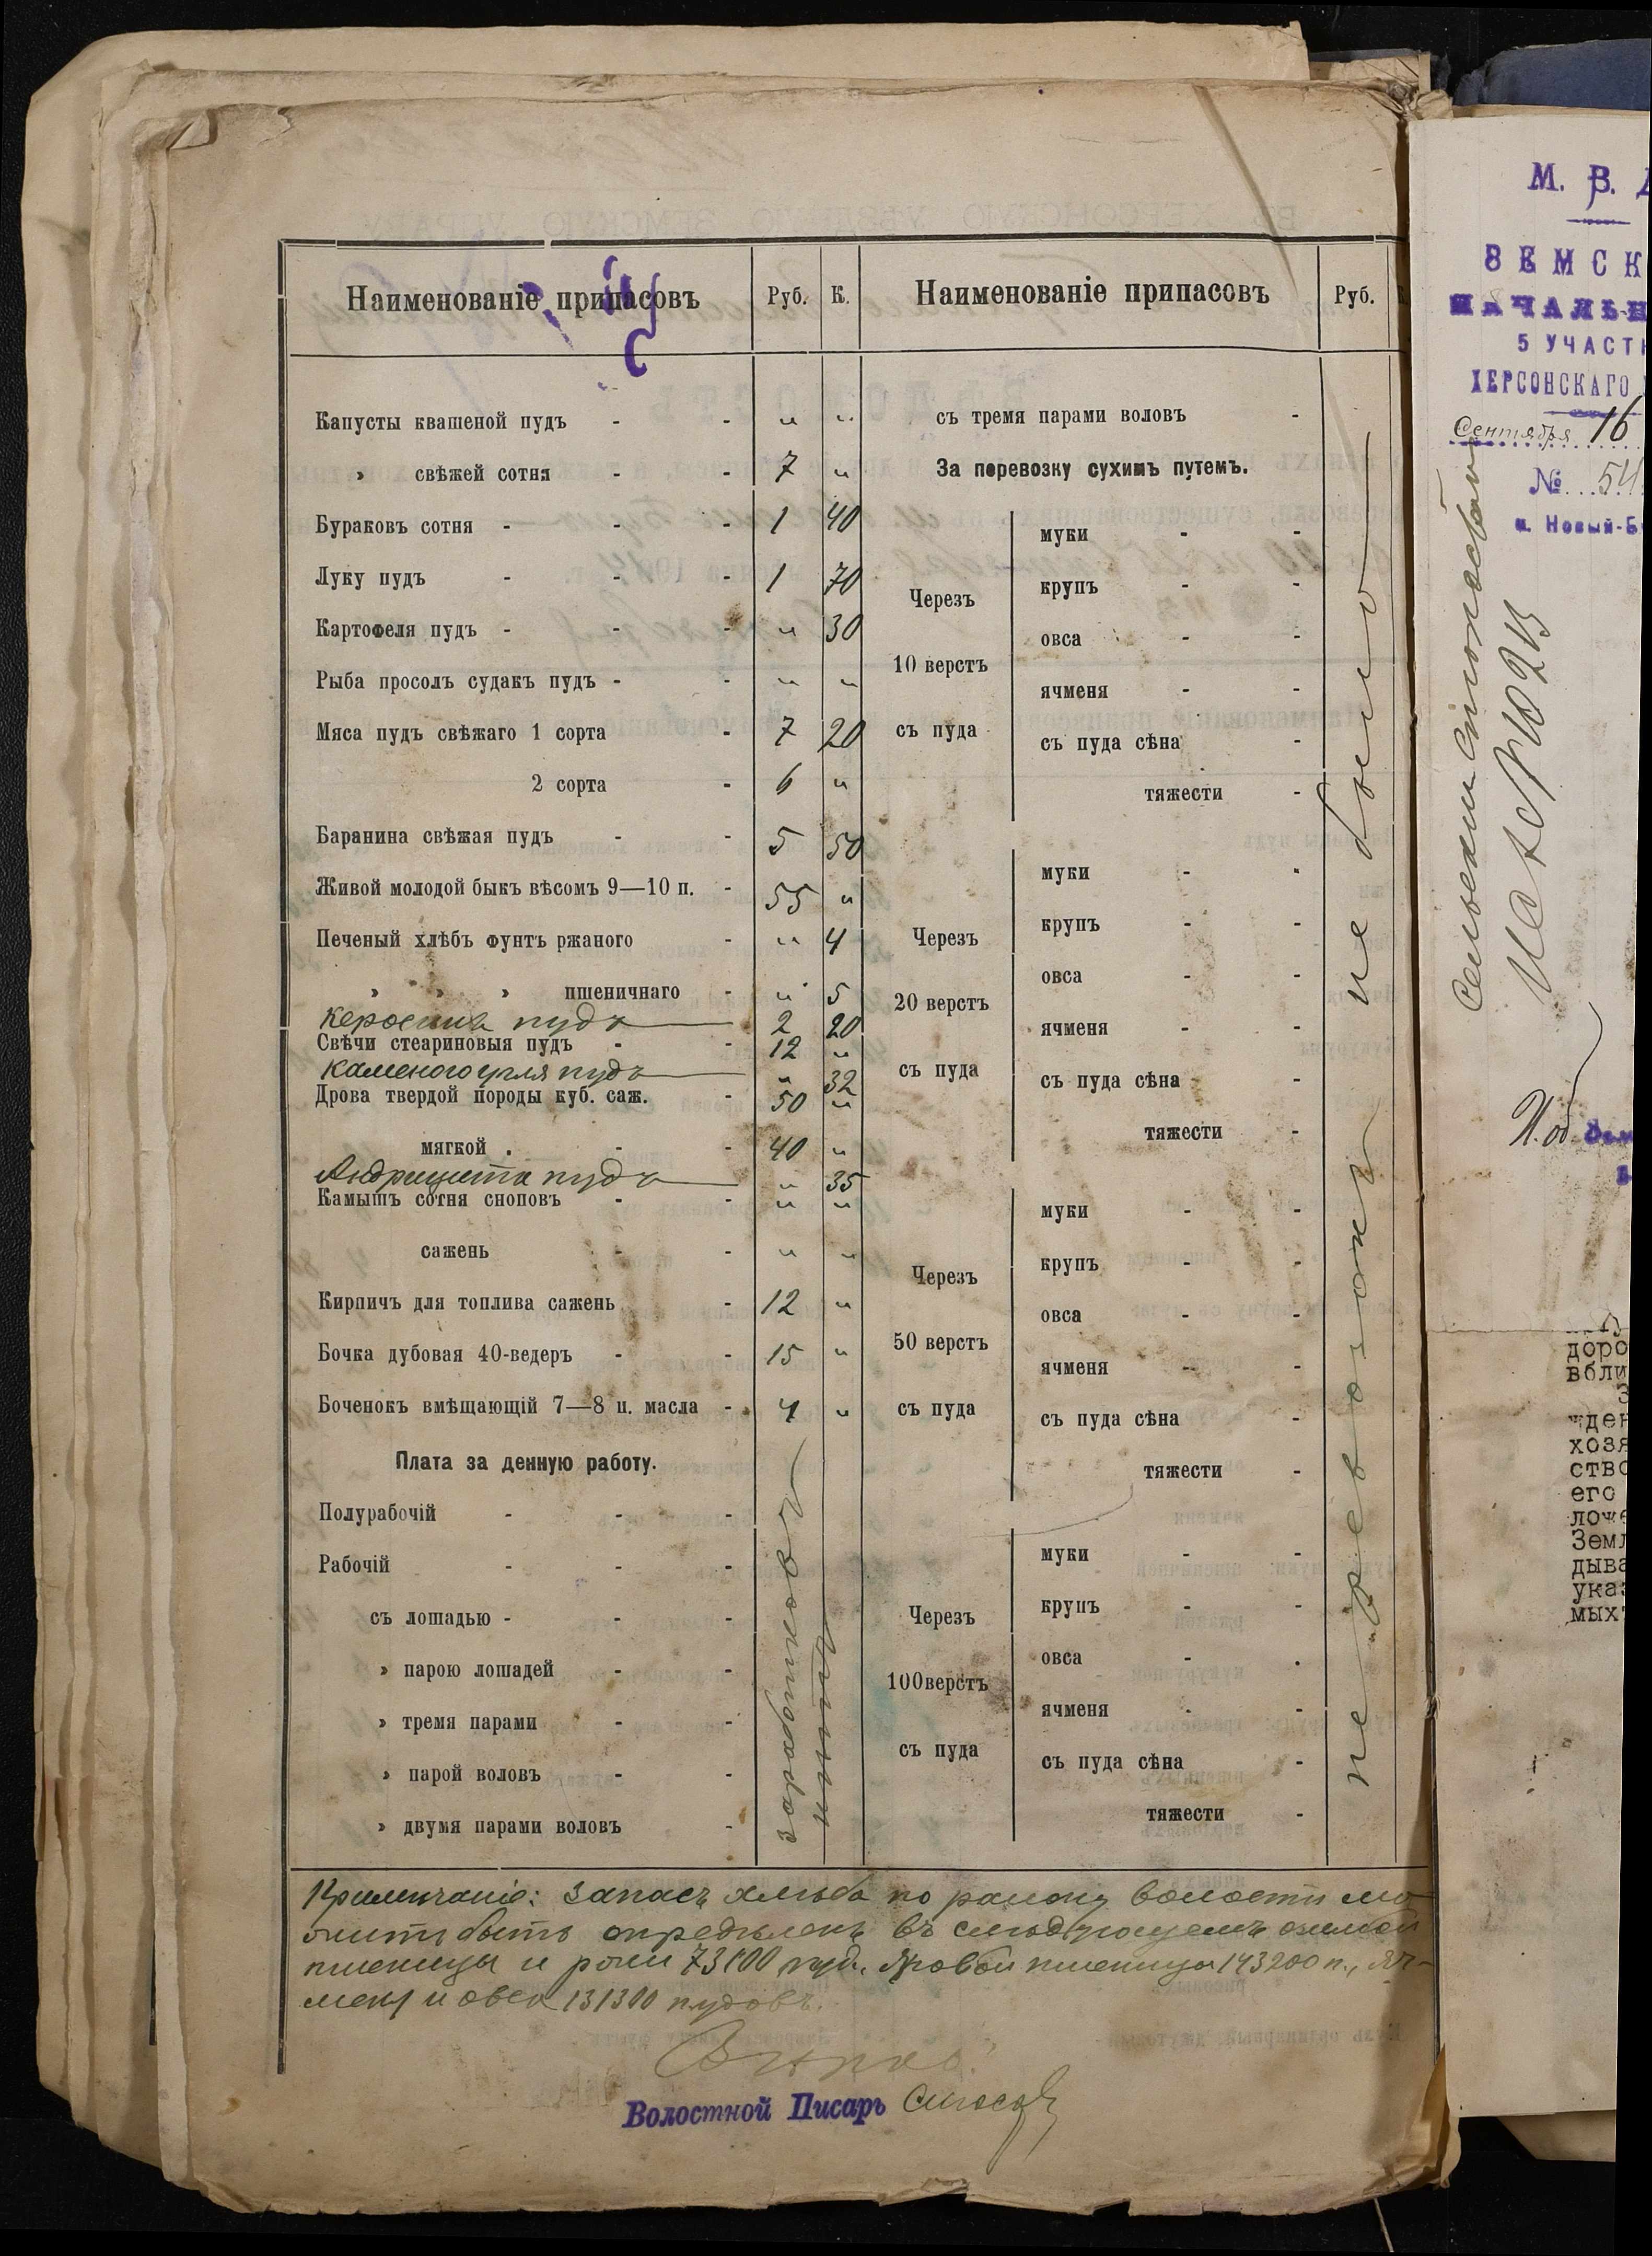 Наименованіе припасовъ Руб. К. Наименованіе припасовъ Руб.
Капусты квашеной пудъ - - „ „
» свѣжей сотня - - 7 „
Бураковъ сотня - - - 1 40
Луку пудъ - - - 1 70
Картофеля пудъ - - - „ 30
Рыба просолъ судакъ пудъ - - „ „
Мяса пудъ свѣжаго 1 сорта - 7 20
2 сорта - 6 „
Баранина свѣжая пудъ - - 5 50
Живой молодой быкъ вѣсомъ 9—10 п. - 55 „
Печеный хлѣбъ фунтъ ржаного - „ 4
» » » пшеничнаго - „ 5
Керосина пудъ 2 20
Свѣчи стеариновыя пудъ - - 12 „
Каменого угля пудъ „ 32
Дрова твердой породы куб. саж. - 50 „
мягкой . - - 40 „
Андрицита пудъ „ 35
Камышъ сотня сноповъ - - „ „
сажень - - „ „
Кирпичъ для топлива сажень - 12 „
Бочка дубовая 40-ведеръ - - 15 „
Боченокъ вмѣщающій 7—8 п. масла - 4 „
Плата за денную работу.
Полурабочій - - -
Рабочій - - -
съ лошадью - - -
» парою лошадей - -
» тремя парами - -
» парой воловъ - -
» двумя парами воловъ -
заработковъ
съ тремя парами воловъ -
За перевозку сухимъ путемъ.
Черезъ
10 верстъ
съ пуда
муки - -
крупъ - -
овса - -
ячменя - -
съ пуда сѣна -
тяжести -
Черезъ
20 верстъ
съ пуда
муки - -
крупъ - -
овса - -
ячменя - -
съ пуда сѣна -
тяжести -
Черезъ
50 верстъ
съ пуда
муки - -
крупъ - -
овса - -
ячменя - -
съ пуда сѣна -
тяжести -
Черезъ
100верстъ
съ пуда
муки - -
крупъ - -
овса - -
ячменя - -
съ пуда сѣна -
тяжести -
перевозки не было
Примѣчаніе: Запасъ хлѣба по району волости мо-
жетъ быть опредѣленъ въ слѣдующемъ озимой
пшеницы и ржи 73100 пуд., Яровой пшеницы 143200 п., Яч-
меня и овса 131300 пудовъ.
Волостной Писарь
М. В.
ЗЕМСК
НАЧАЛЬН
5 УЧАСТ
ХЕРСОНСКАГО
Сентября 16
№ 54
м. Новый-Б
Сельскимъ
И. об.
доро
вбли
жден
хозя
ство
его
ложе
Земл
дыва
указ
мыхъ